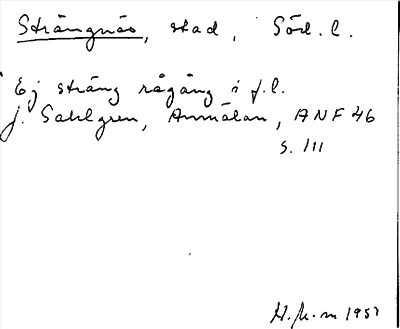 Strängnäs, stad, Södl. l.
Ej sträng rågång i f.l.
J. Sahlgren, Anmälan, ANF 46
s. 111
H. M-m 1957